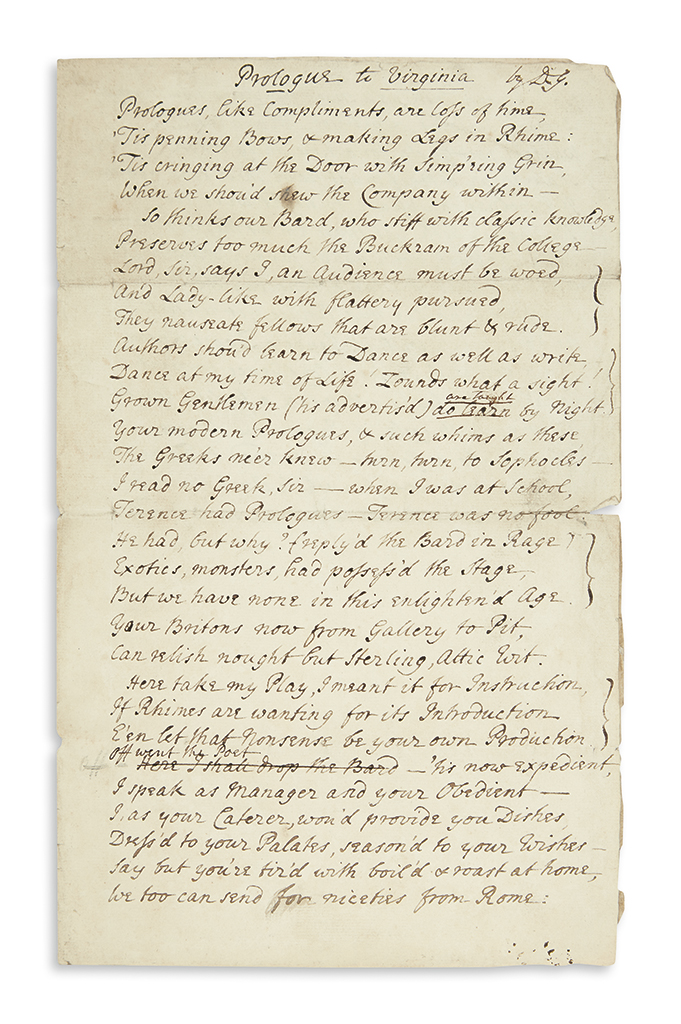 Prologue to Virginia by D.G.
Prologues, like Compliments, are loss of time,
'Tis penning Bows, & making Legs in Rhime:
'Tis cringing at the Door with Simp'ring Grin,
When we shou'd shew the Company within —
So thinks our Bard, who stiff with classic knowledge,
Preserves too much the Buckram of the College —
Lord, Sir, says I, an Audience must be woed,
And Lady-like with flattery pursued,
They nauseate fellows that are blunt & rude.
Authors shou'd learn to Dance as well as write,
Dance at my time of Life! Zounds what a sight!
are taught
Grown Gentlemen ('tis advertis'd) do learn by Night.
Your modern Prologues, & such whims as these,
The Greeks ne'er knew — turn, turn, to Sophocles —
I read no Greek, Sir — when I was at School,
Terence had Prologues — Terence was no fool.
He had, but why? (reply'd the Bard in Rage)
Exotics, monsters, had possess'd the Stage,
But we have none in this enlighten'd Age.
Your Britons now from Gallery to Pit,
Can relish nought but Sterling, Attic Wit.
Here take my Play, I meant it for Instruction,
If Rhimes are wanting for its Introduction
E'en let that Nonsense be your own Production.
Off went the Poet
Here I shall drop the Bard — 'tis now expedient,
I speak as Manager and your Obedient —
I, as your Caterer, wou'd provide you Dishes,
Dress'd to your Palates, season'd to your Wishes —
Say but you're tir'd with boil'd & roast at home,
We too can send for niceties from Rome: